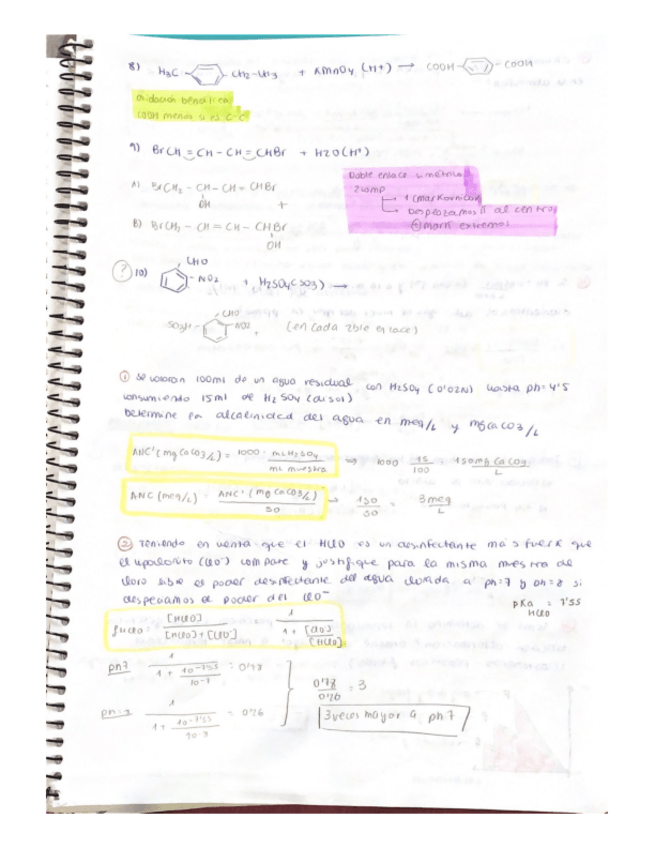 8) H3C - CH2-CH3 + KMnO4 (H+) → COOH - COOH
oxidación bencílica
COOH menos si es C-C
9) BrCH = CH - CH = CHBr + H2O(H+)
Doble enlace simétrico
2 comp
1 (Markovnicov)
Desplazamos II al centro
⊕ mark extremos
A) BrCH2 - CH - CH = CHBr
OH
+
B) BrCH2 - CH = CH - CHBr
OH
? 10) CHO
NO2 + H2SO4(SO3) →
CHO
SO3H - NO2 + (en cada doble enlace)
① Se valoran 100ml de un agua residual con H2SO4 (0'02N) hasta ph=4'5
consumiendo 15ml de H2SO4 (disol)
Determine la alcalinidad del agua en meq/L y mgCaCO3/L
ANC' (mg CaCO3/L) = 1000 · mL H2SO4 / mL muestra → 1000 · 15 / 100 = 150 mg CaCO3 / L
ANC (meq/L) = ANC' (mg CaCO3/L) / 50 → 150 / 50 = 3 meq / L
② Teniendo en cuenta que el HClO es un desinfectante más fuerte que
el hipoclorito (ClO-) compare y justifique para la misma muestra de
cloro libre el poder desinfectante del agua clorada a ph=7 y ph=8 si
despreciamos el poder del ClO-
pKa HClO = 7'55
[HClO] / [HClO]+[ClO] 1 / 1 + [ClO] / [HClO]
ph7 1 / 1 + 10^-7'55 / 10^-7 = 0'78
0'78 / 0'26 = 3
ph=8 1 / 1 + 10^-7'55 / 10^-8 = 0'26
3 veces mayor a ph7